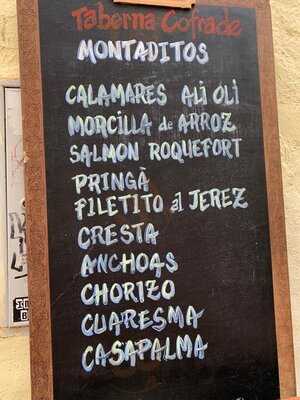 Taberna Cofrade
MONTADITOS
CALAMARES ALi OLi
MORCILLA de ARROZ
SALMON ROQUEFORT
PRINGÁ
FILETITO al JEREZ
CRESTA
ANCHOAS
CHORIZO
CUARESMA
CASAPALMA